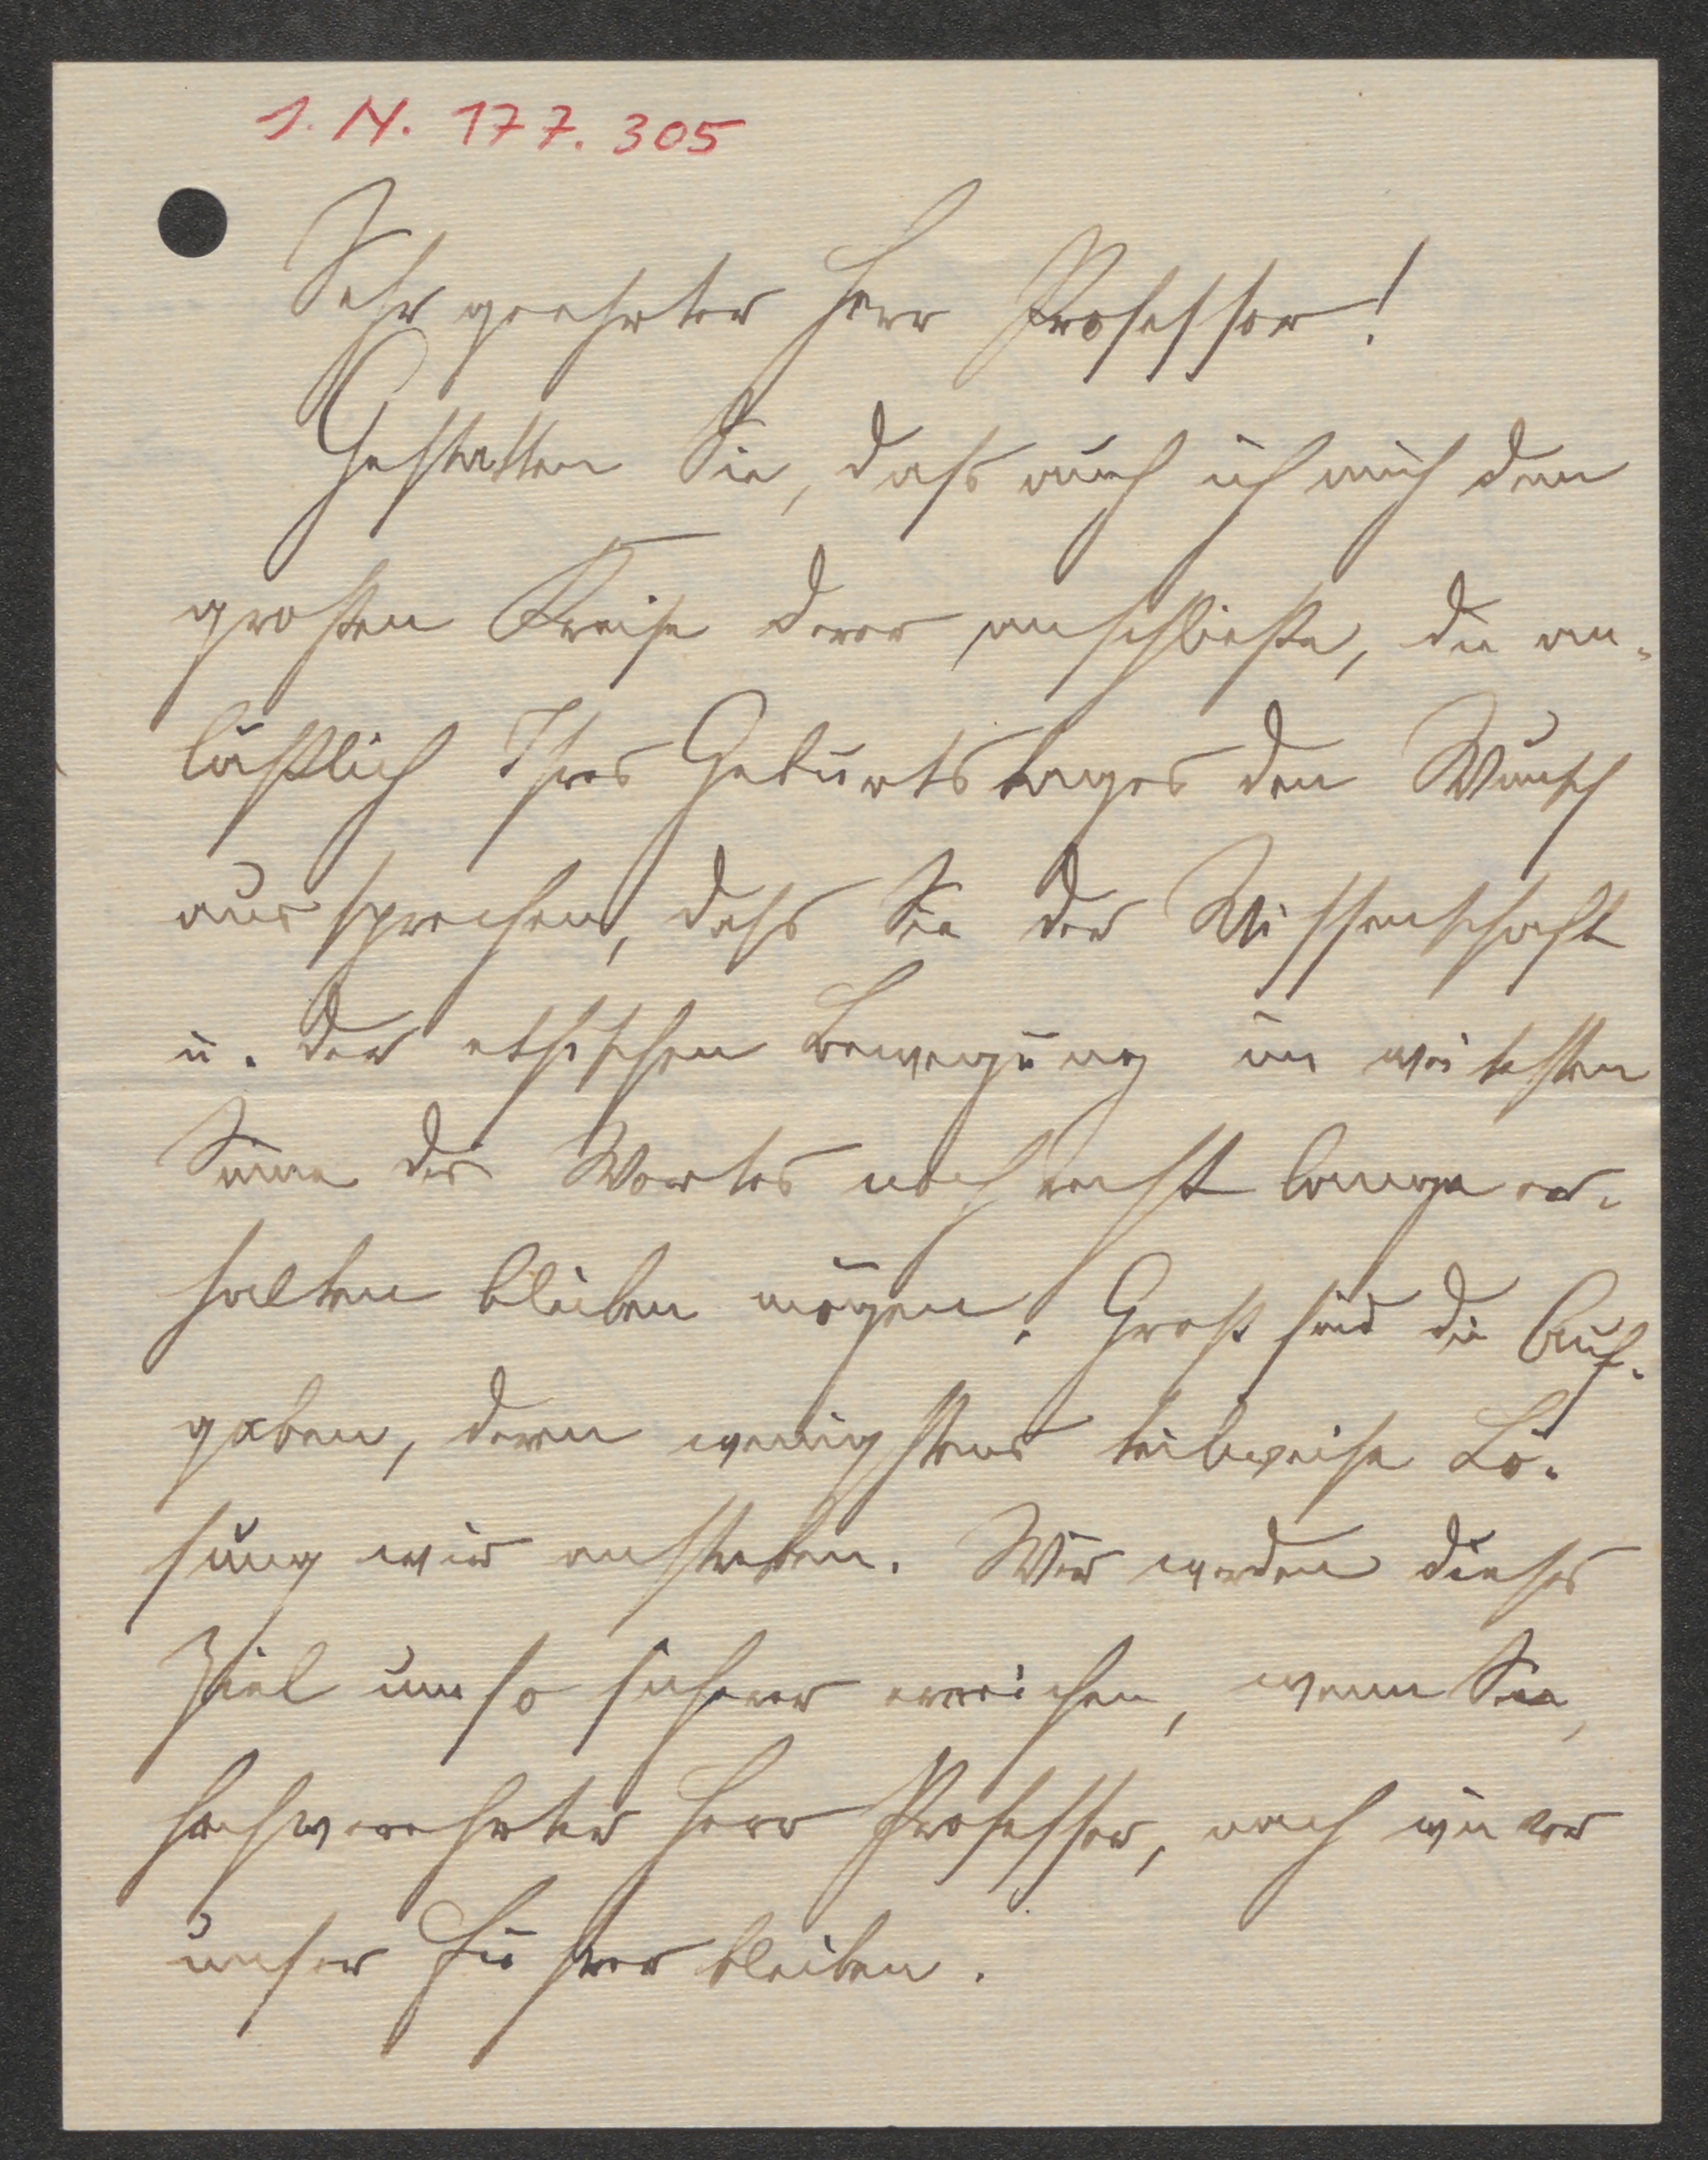 I. N. 177.305
Sehr geehrter Herr Professor!
Gestatten Sie, dass auch ich mich dem
großen Kreise derer anschließe, die an-
läßlich Ihres Geburtstages den Wunsch
aussprechen, dass Sie der Wissenschaft
u. der ethischen Bewegung im weitesten
Sinne des Wortes noch recht lange er-
halten bleiben mögen. Groß sind die Auf-
gaben, deren wenigstens teilweise Lö-
sung wir anstreben. Wir werden dieses
Ziel um so sicherer erreichen, wenn Sie,
hochverehrter Herr Professor, nach wie vor
unser Führer bleiben.